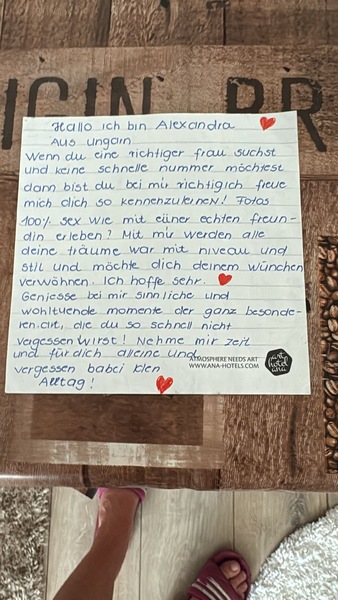 IGIN BR
Hallo ich bin Alexandra
Aus ungarn
Wenn du eine richtiger frau suchst
und keine schnelle nummer möchtest
dann bist du bei mir richtigich freue
mich dich so kennenzulernen! Fotos
100% sex wie mit einer echten freun-
din erleben? Mit mir werden alle
deine träume war mit niveau und
stil und möchte dich deinem wünchen
verwöhnen. Ich hoffe sehr.
Geniesse bei mir sinnliche und
wohltuende momente der ganz besonde-
ren art, die du so schnell nicht
vegessen wirst! Nehme mir zeit
und für dich alleine und
vergessen babei den
Alltag!
ATMOSPHERE NEEDS ART
WWW.ANA-HOTELS.COM
art
hotel
ana